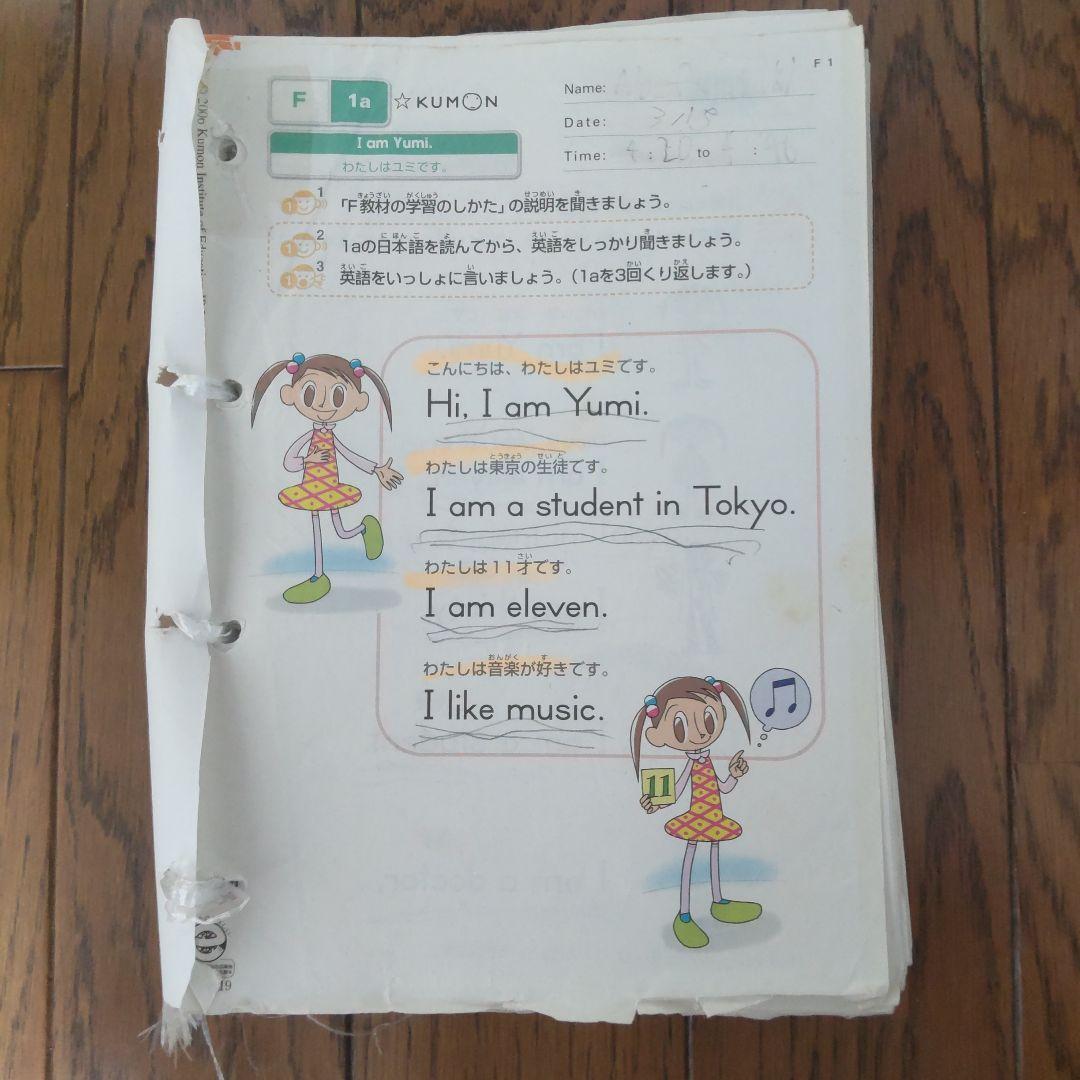 F 1
F 1a ☆KUMON
Name:
Date: 3/19
Time: 4:20 to :
I am Yumi.
わたしはユミです。
1 「F教材の学習のしかた」の説明を聞きましょう。
2 1aの日本語を読んでから、英語をしっかり聞きましょう。
3 英語をいっしょに言いましょう。(1aを3回くり返します。)
こんにちは、わたしはユミです。
Hi, I am Yumi.
わたしは東京の生徒です。
I am a student in Tokyo.
わたしは11才です。
I am eleven.
わたしは音楽が好きです。
I like music.
11
© 2006 Kumon Institute of
e
19